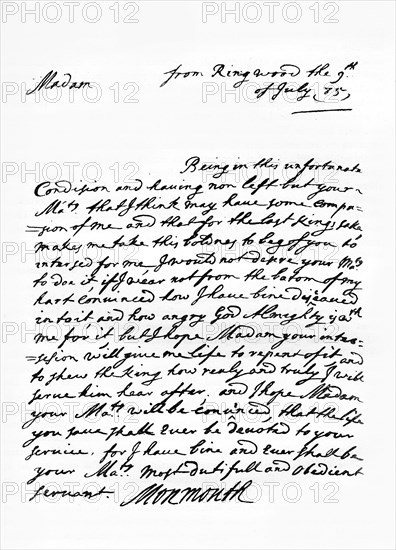 from Ringwood the 9th
Madam of July 85
Being in this unfortunate
Condision and having non left but your
Maty. that I think may have some Compa-
=sion of me and that for the last Kings sake
makes me take this boldnes to beg of you to
intersed for me I would not desire your Maty
to doe it if I wear not from the botom of my
hart Convinced how I have bine disceaved
into it and how angry God Almighty is with
me for it but I hope Madam your inter-
=sesion will give me life to repent of it and
to shew the King how realy and truly I will
serve him hear after, and I hope Madam
your Maty. will be Convinced that the life
you save shall Ever be devoted to your
service, for I have bine and Ever shall be
your Maty. most dutifull and obedient
servant. Monmouth
PHOTO 12